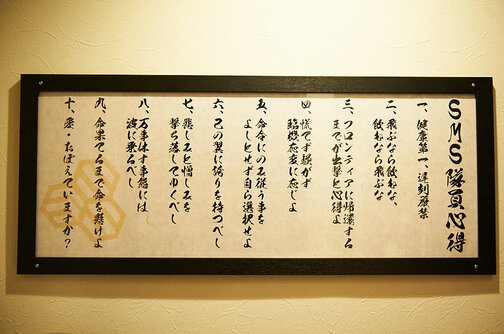 SMS隊員心得
一、健康第一、遅刻厳禁
二、飛ぶなら飲むな、
飲むなら飛ぶな
三、フロンティアに帰還する
までが出撃と心得よ
四、慌てず騒がず
臨機応変に応じよ
五、命令にのみ従う事を
よしとせず自ら選択せよ
六、己の翼に誇りを持つべし
七、悲しみと憎しみを
撃ち落してゆくべし
八、万事休す事態には
波に乗るべし
九、命果てるまで命を懸けよ
十、愛・おぼえていますか?